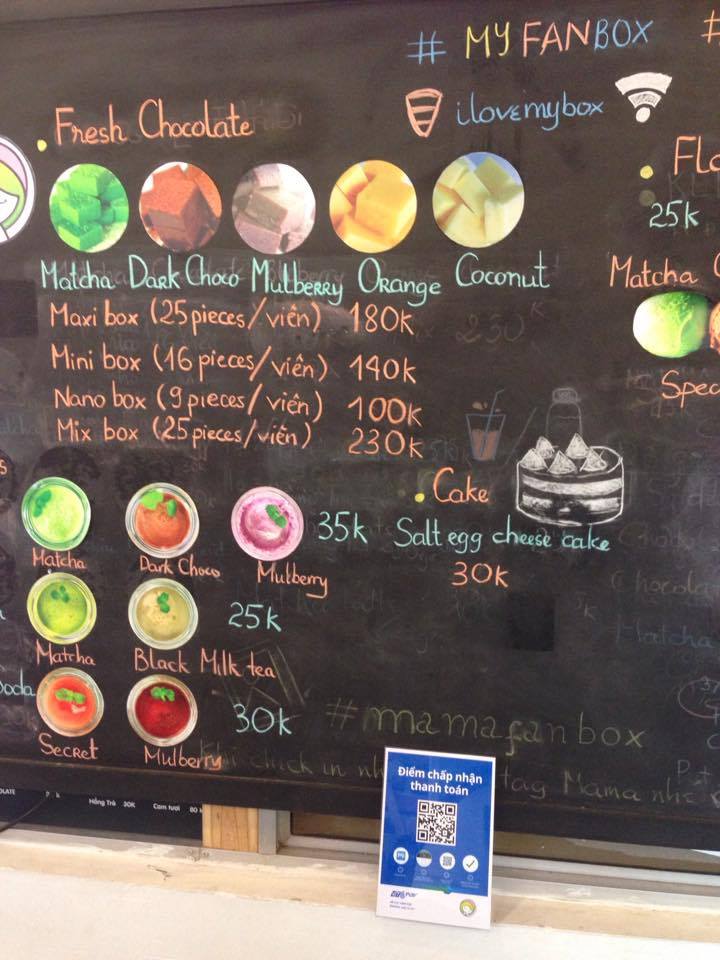 # MY FANBOX
ilovemybox
Fresh Chocolate
Matcha Dark Choco Mulberry Orange Coconut
Maxi box (25 pieces/viên) 180k
Mini box (16 pieces/viên) 140k
Nano box (9 pieces/viên) 100k
Mix box (25 pieces/viên) 230k
25k
Matcha
Cake
Salt egg cheese cake
30k
Matcha Dark Choco Mulberry 35k
Matcha Black Milk tea 25k
Soda
Secret Mulberry 30k
#mamafanbox
Hồng Trà 30K Cam tươi 80
Điểm chấp nhận
thanh toán